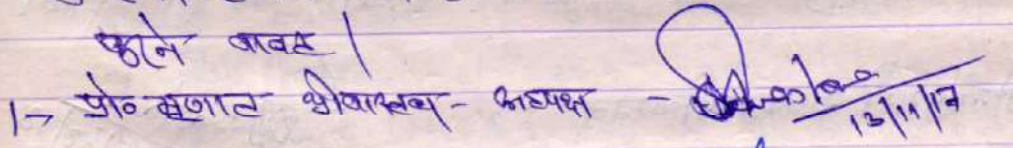 करने बावत |
1→ प्रो० मृणाल श्रीवास्तव - अध्यक्ष - 13/11/17